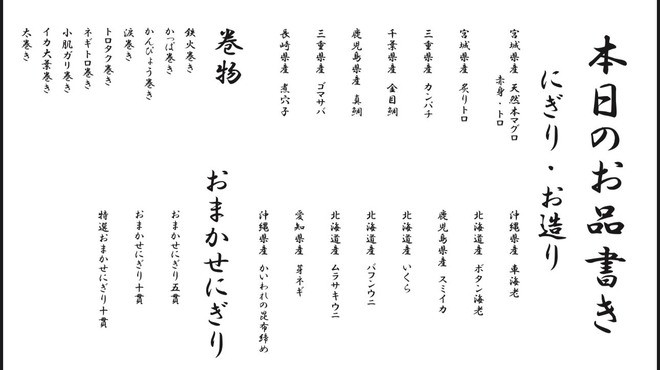 本日のお品書き
にぎり・お造り
宮城県産 天然本マグロ
赤身・トロ
宮城県産 炙りトロ
三重県産 カンパチ
千葉県産 金目鯛
鹿児島県産 真鯛
三重県産 ゴマサバ
長崎県産 煮穴子
沖縄県産 車海老
北海道産 ボタン海老
鹿児島県産 スミイカ
北海道産 いくら
北海道産 バフンウニ
北海道産 ムラサキウニ
愛知県産 芽ネギ
沖縄県産 かいわれの昆布締め
巻物
鉄火巻き
かっぱ巻き
かんぴょう巻き
涙巻き
トロタク巻き
ネギトロ巻き
小肌ガリ巻き
イカ大葉巻き
太巻き
おまかせにぎり
おまかせにぎり五貫
おまかせにぎり十貫
特選おまかせにぎり十貫